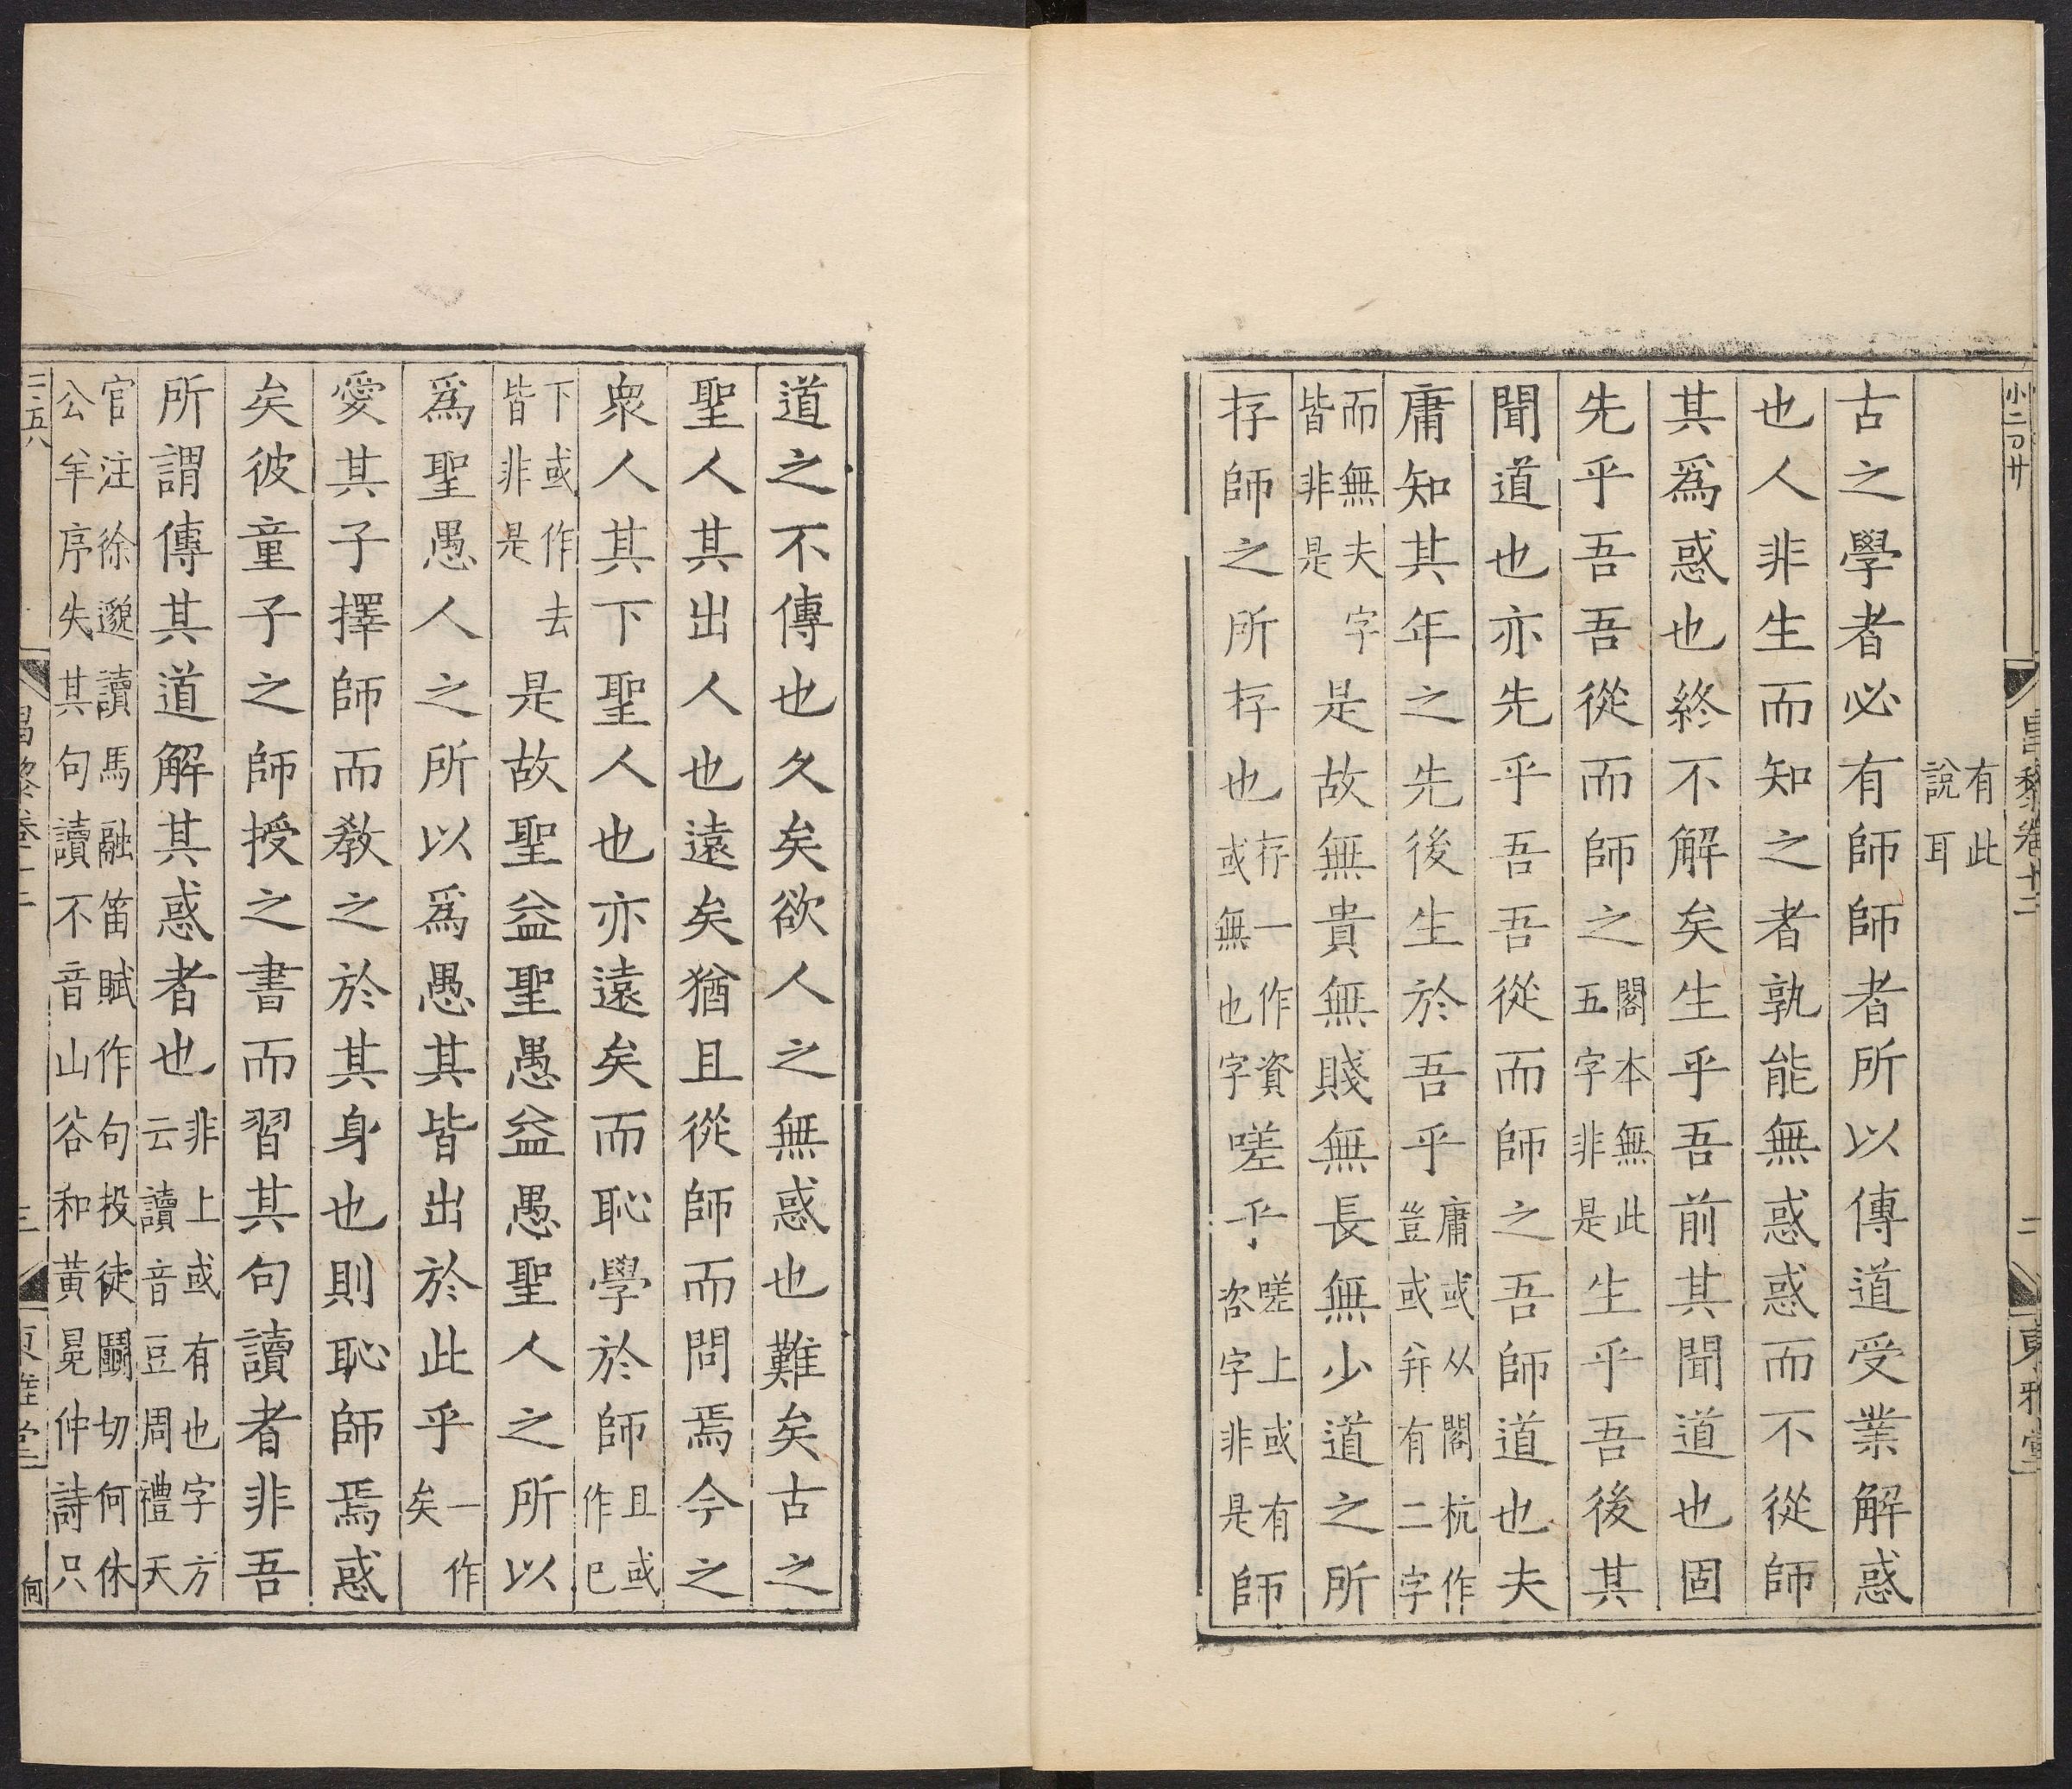 小二日廿
昌黎卷十二
二
東雅堂
有此
說耳
古之學者必有師師者所以傳道受業解惑
也人非生而知之者孰能無惑惑而不從師
其爲惑也終不解矣生乎吾前其聞道也固
先乎吾吾從而師之閣本無此五字非是生乎吾後其
聞道也亦先乎吾吾從而師之吾師道也夫
庸知其年之先後生於吾乎庸或从閣杭作豈或并有二字
而無夫字皆非是是故無貴無賤無長無少道之所
存師之所存也存一作資或無也字嗟乎嗟上或有咨字非是師
道之不傳也久矣欲人之無惑也難矣古之
聖人其出人也遠矣猶且從師而問焉今之
衆人其下聖人也亦遠矣而恥學於師且或作已
下或作去皆非是是故聖益聖愚益愚聖人之所以
爲聖愚人之所以爲愚其皆出於此乎一作矣
愛其子擇師而教之於其身也則恥師焉惑
矣彼童子之師授之書而習其句讀者非吾
所謂傳其道解其惑者也非上或有也字方云讀音豆周禮天
官注徐邈讀馬融笛賦作句投徒鬭切何休
公羊序失其句讀不音山谷和黃冕仲詩只
二五八
昌黎卷十二
三
東雅堂
何